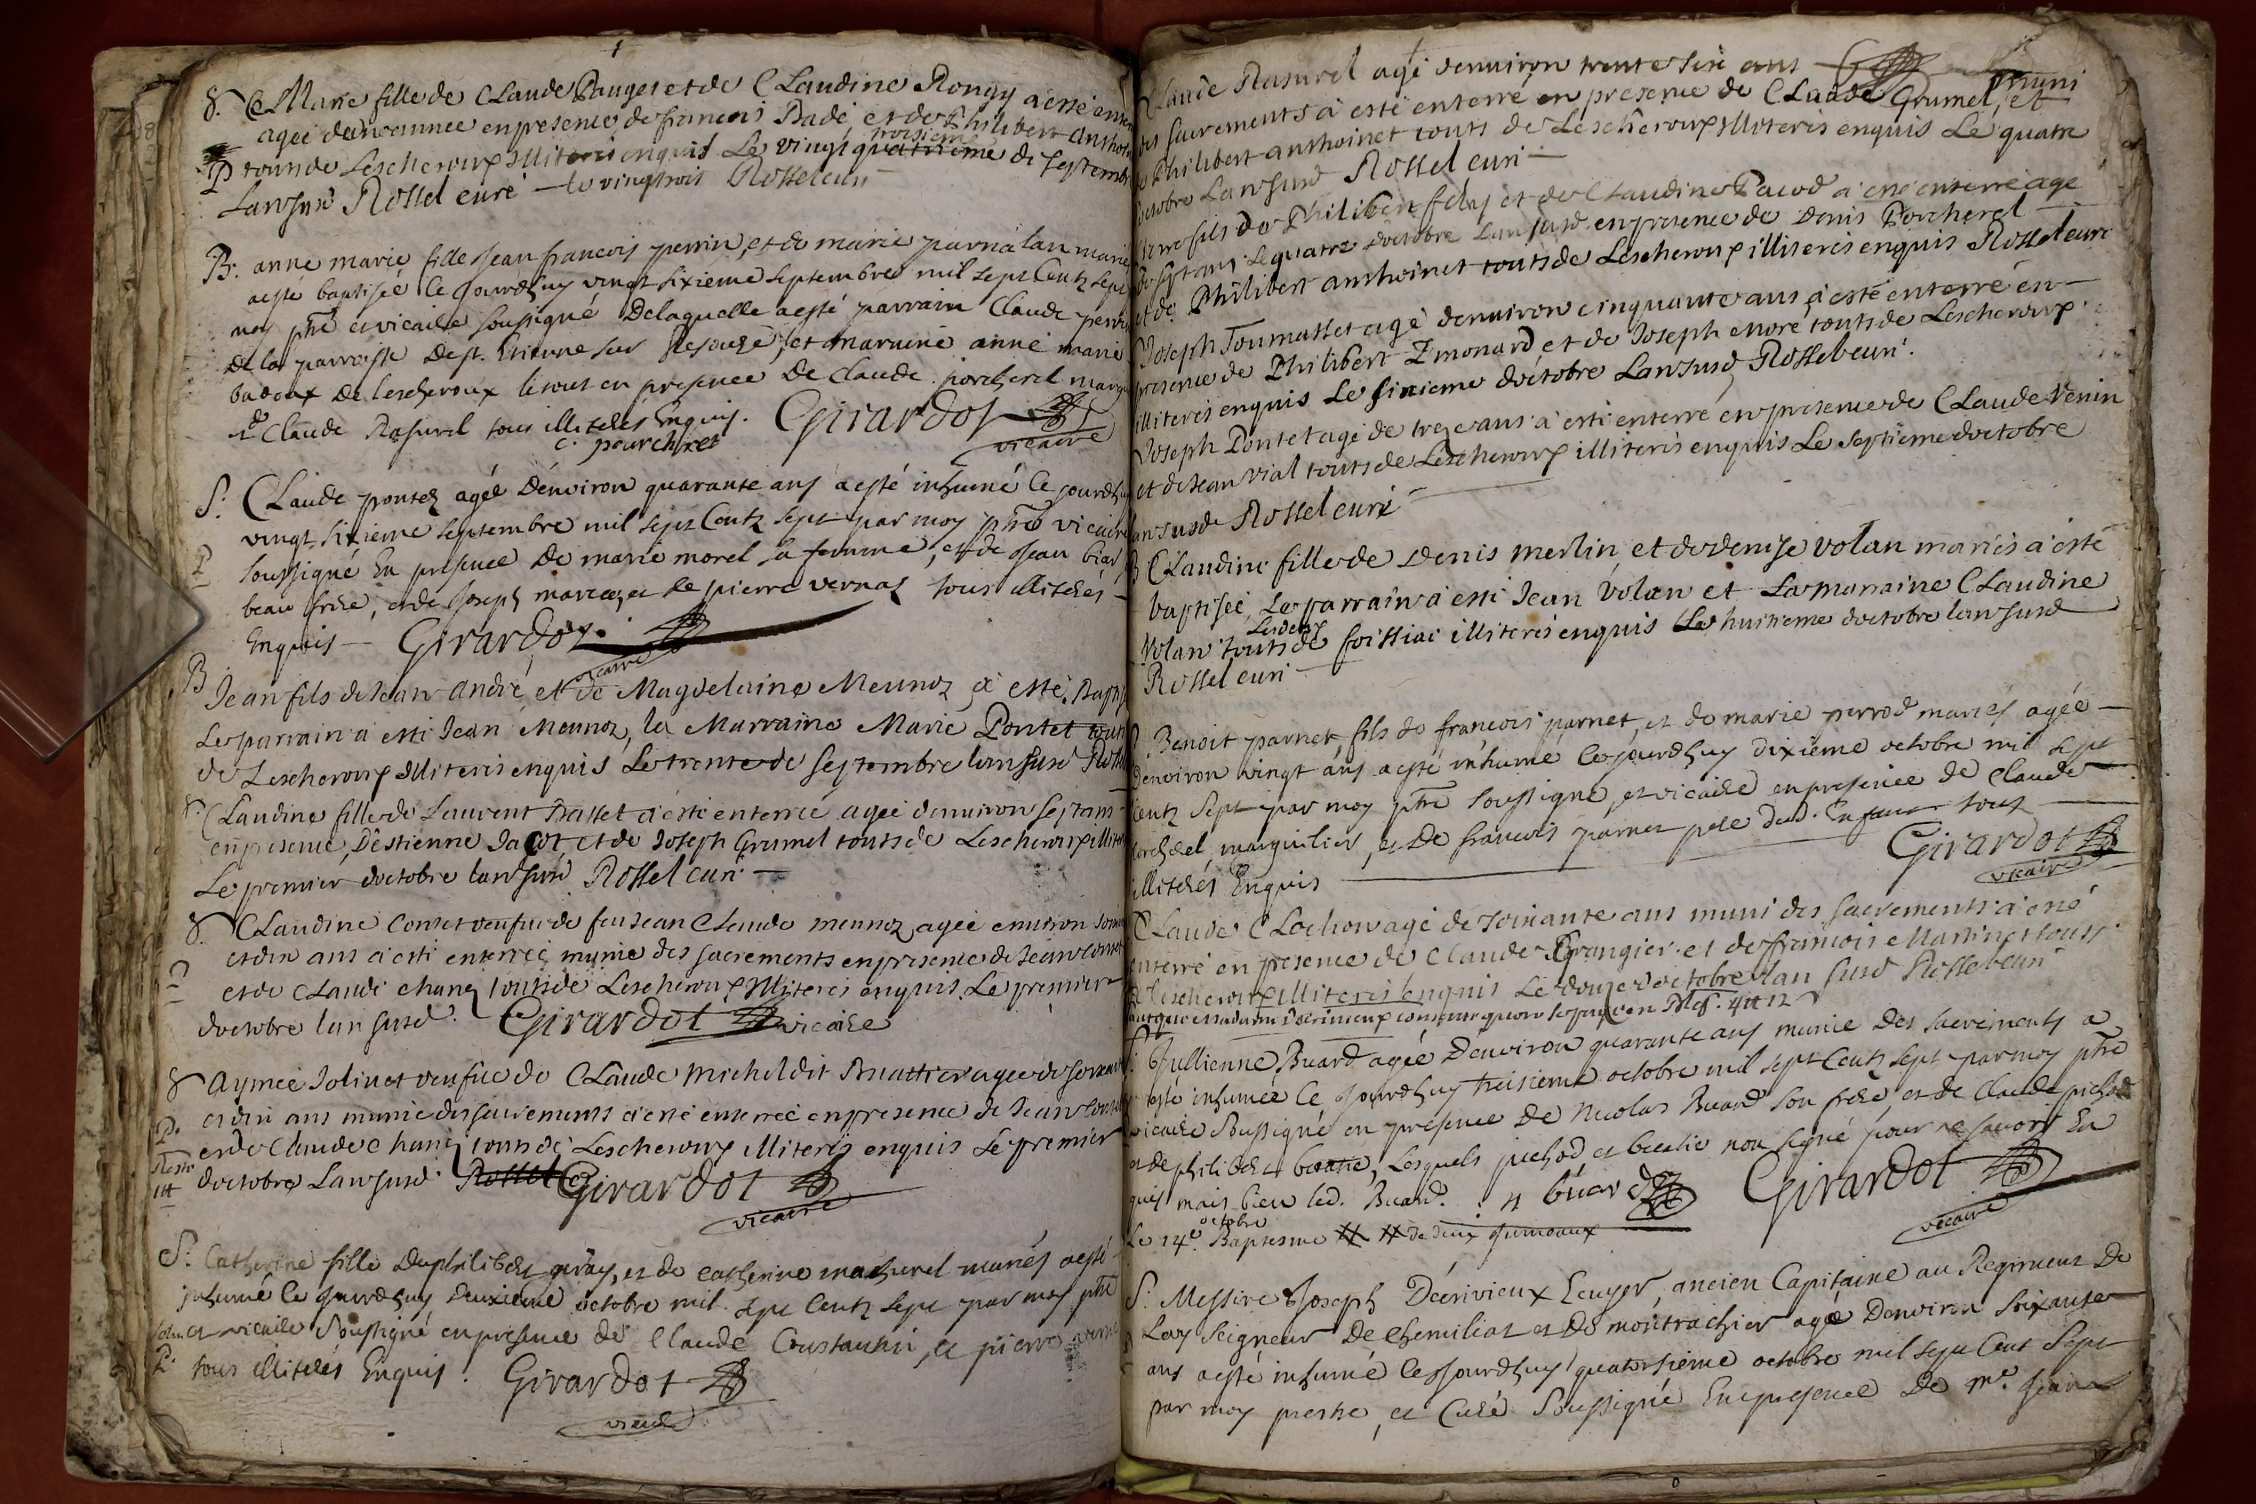 S. Marie fille de Claude Pauget et de Claudine Rongy a esté enter
agee deux année en presence de francois Badé et de Philibert Anthoi
P tous de Lescheroux illiteres enquis Le vingt quatrieme de septembre
troisiem
Lan susd Rossel curé — le vingtrois Rossel curé
B. anne marie fille Jean francois perrin, et de marie parnalan marie
a esté baptisée ce jourdhuy vingt sixieme septembre mil sept Centz sept
moy ptre et vicaire soussigné De laquelle a esté parrain Claude perrin
de la parroisse De st. Etienne sur Resouze, et maraine anne marie
badoux de lescheroux le tout en presence De Claude porcherel margu
et Claude Rasurel tous illiterés Enquis. Girardot
C. pourcherel vicaire
S. Claude pontez agée d'environ quarante ans a esté inhumé Ce jourdhuy
vingt sixieme septembre mil sept Centz sept par moy ptre vicaire
P soussigné En presence De marie morel sa femme, et de Jean biard
beau frere, et de Joseph marcoz et de pierre vernas tous illiterés —
Enquis — Girardot
vicaire
B Jean fils de Jean André et de Magdelaine Meunoz a esté Bapt
Le parrain a esté Jean Meunoz, la Marraine Marie Pontet tous
de Lescheroux illiteres enquis Le trente de septembre lan susd Ross
S. Claudine fille de Laurent Basset a esté enterree agee denviron sept ans
en presence, D'estienne Jacot et de Joseph Grumel touts de Lescheroux illiter
Le premier doctobre lan susd Rossel curé —
S. Claudine Contet veufue de feu Jean Claude meunoz agee environ soixan
et dix ans a esté enterreé, munie des sacrements en presence de Jean Contet
et de Claude chanez touts de Lescheroux illiteres enquis Le premier
doctobre lan susd. Girardot vicaire
S Aymee Jolinet veufue de Claude Michel dit Bruattier agee de soixante
et dix ans munie des sacrements a esté enterreé en presence de Jean Contet
P. et de Claude Chanez touts de Lescheroux illiteres enquis Le premier
doctobre Lan susd. Rossel Girardot
vicaire
S. Catherine fille De philibert geray, et de catherine macherel mariés a esté
inhumé Ce jourdhuy deuxieme octobre mil sept Centz sept par moy ptre
et vicaire Soussigné en presence de Claude Constantin, et pierre
P. tous illiterés Enquis. Girardot
vicaire
Claude Rasurel agé denuiron trente six ans — muni
des sacrements a esté enterré en presence de Claude Grumel, et
de Philibert anthoinet touts de Lescheroux illiteres enquis Le quatre
octobre Lan susd Rossel curé —
fils de Philibert felix et de Claudine Pacod a esté enterré agé
de sept ans Le quatre doctobre Lan susd en presence de Denis Porcherel —
et de Philibert anthoinet touts de Lescheroux illiteres enquis Rossel curé
Joseph Toumasset agé denuiron cinquante ans a esté enterré en —
presence de Philibert Emonard et de Joseph Moré touts de Lescheroux
illiteres enquis Le sixieme doctobre Lan susd Rossel curé.
Joseph Pontet agé de treze ans a esté enterré en presence de Claude Venin
et de Jean Vial touts de Lescheroux illiteres enquis Le septieme doctobre
lan susd Rossel curé
B Claudine fille de Denis merlin et de denise volan mariés a esté
baptisée, Le parrain a esté Jean Volan et La marraine Claudine
Les deux
Volan touts de foissiac illiteres enquis Le huitieme doctobre lan susd
Rossel curé
Benoit parnet, fils de francois parnet, et de marie perrod mariés agée —
denviron vingt ans a esté inhumé Ce jourdhuy dixieme octobre mil sept
Centz sept par moy ptre soussigné, et vicaire en presence de Claude
porcherel, marguilier, et De francois parnet pere dud. Enfant tous
illiterés Enquis — Girardot
vicaire
Claude Clochon agé de soixante ans muni des sacrements a esté
enterré en presence de Claude Grangier et de francois Martinet touts
de Lescheroux illiteres enquis Le douze doctobre lan susd Rossel curé
S. Jullienne Buard agée Denviron quarante ans munie des sacrements a
esté inhumée Ce jourdhuy treisieme octobre mil sept Centz sept par moy ptre
vicaire Soussigné en presence De Nicolas Buard son frere, et de Claude pichod
et de philibert Lesquels pichod et non signé pour ne savoir En
quis mais bien led. Buard. n buard Girardot
vicaire
octobre
Le 14e. Baptesme de deux Jumeaux
S. Messire Joseph Décrivieux Ecuyer, ancien Capitaine au Regiment De
Loy Seigneur De Chemiliat et De montrachier agé Denviron soixante
ans a esté inhumé ce Jourdhuy quatorsieme octobre mil sept Cent Sept
par moy prestre, et Curé Soussigné En presence De mre. Jean